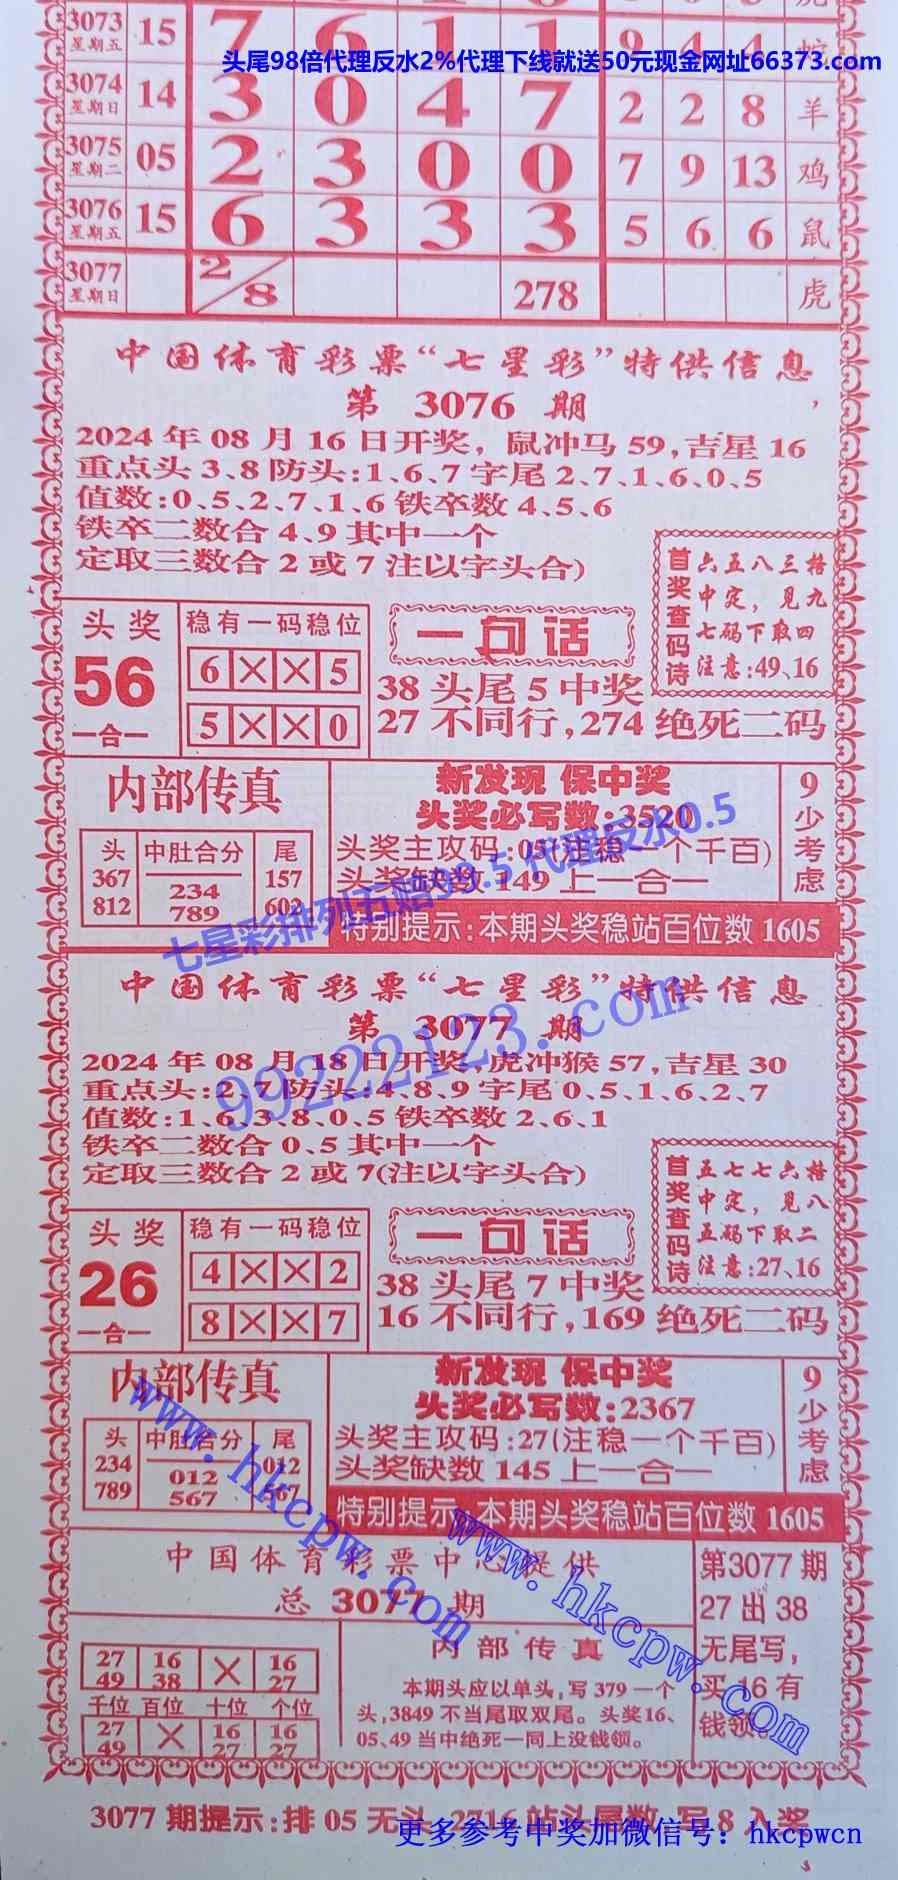 3073 15 7 6 1 1 9 4 4 蛇
星期五
头尾98倍代理反水2%代理下线就送50元现金网址66373.com
3074 14 3 0 4 7 2 2 8 羊
星期日
3075 05 2 3 0 0 7 9 13 鸡
星期二
3076 15 6 3 3 3 5 6 6 鼠
星期五
3077 2/8 278 虎
星期日
中国体育彩票“七星彩”特供信息
第 3076 期
2024年08月16日开奖，鼠冲马59,吉星16
重点头3、8防头:1、6、7字尾2、7、1、6、0、5
值数:0、5、2、7、1、6铁卒数4、5、6
铁卒二数合4、9其中一个
定取三数合2或7注以字头合)
首奖查码诗
六五八三格
中定，见九
七码下取四
注意:49、16
头奖
56
一合一
稳有一码稳位
6 × × 5
5 × × 0
一句话
38头尾5中奖
27不同行,274绝死二码
内部传真
头 中肚合分 尾
367 234 157
812 789 602
新发现 保中奖
头奖必写数:3520
头奖主攻码:05(注稳一个千百)
头奖缺数149上一合一
9少考虑
特别提示:本期头奖稳站百位数1605
七星彩排列五赔99.5代理反水0.5
中国体育彩票“七星彩”特供信息
第 3077 期
99222123.com
2024年08月18日开奖,虎冲猴57,吉星30
重点头:2、7防头:4、8、9字尾0、5、1、6、2、7
值数:1、6、3、8、0、5铁卒数2、6、1
铁卒二数合0、5其中一个
定取三数合2或7(注以字头合)
首奖查码诗
五七七六格
中定，见八
五码下取二
注意:27、16
头奖
26
一合一
稳有一码稳位
4 × × 2
8 × × 7
一句话
38头尾7中奖
16不同行,169绝死二码
内部传真
头 中肚合分 尾
234 012 012
789 567 567
新发现 保中奖
头奖必写数:2367
头奖主攻码:27(注稳一个千百)
头奖缺数145上一合一
9少考虑
特别提示:本期头奖稳站百位数1605
www.hkcpw.com
www.hkcpw.com
中国体育彩票中心提供
总 3077 期
27 16 × 16
49 38 27
千位 百位 十位 个位
27 × 16 16
49 27 27
内部传真
本期头应以单头,写379一个
头,3849不当尾取双尾。头奖16、
05、49当中绝死一同上没钱领。
第3077期
27出38
无尾写,
买16有
钱领。
3077期提示:排05无头,2716站头尾数,写8入奖
更多参考中奖加微信号：hkcpwcn